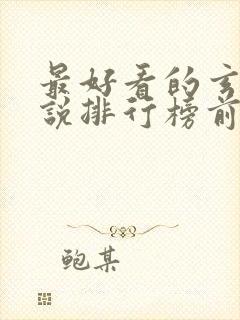 最好看的玄
說排行榜前
鲍某